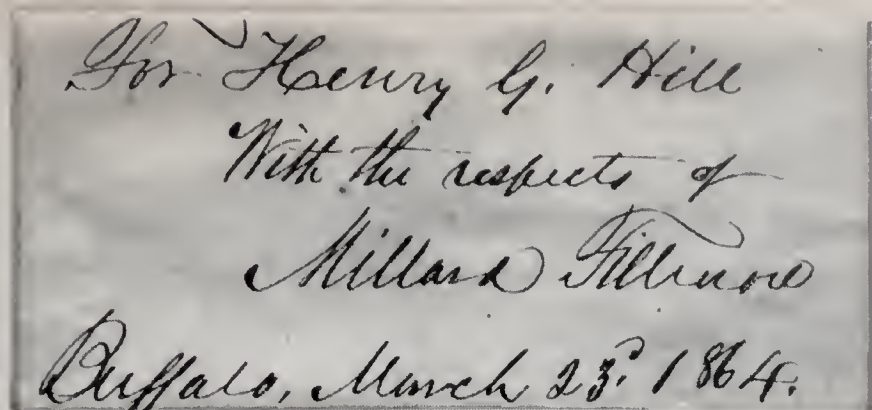 For Henry G. Hill
With the respects of
Millard Fillmore
Buffalo, March 23d. 1864.